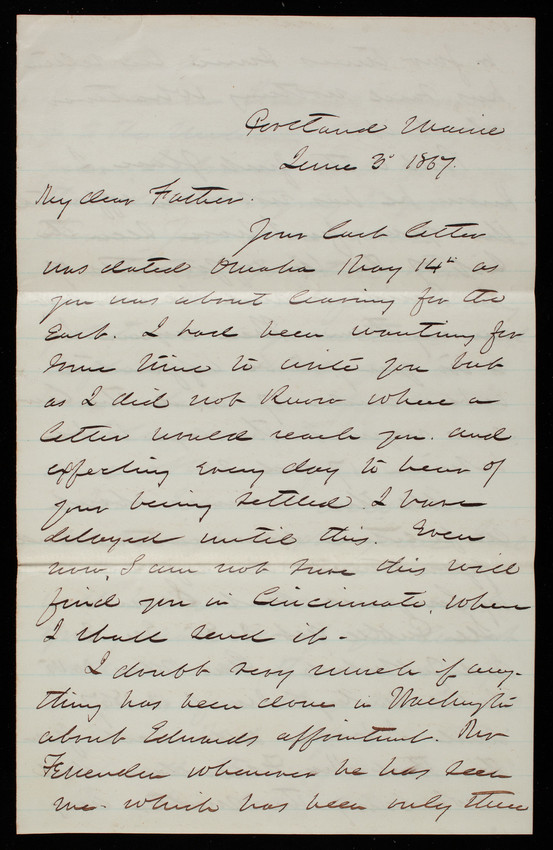 Portland Maine
June 3d 1867.
My dear Father.
Your last letter
was dated Omaha May 14th as
you was about leaving for the
East. I had been wanting for
some time to write you but
as I did not know where a
letter would reach you. and
expecting every day to hear of
your being settled. I have
delayed until this. Even
now, I am not sure this will
find you in Cincinnati, where
I shall send it -
I doubt very much if any-
thing has been done in Washington
about Edwards appointment. Mr
Fessenden whenever he has seen
me - which has been only three